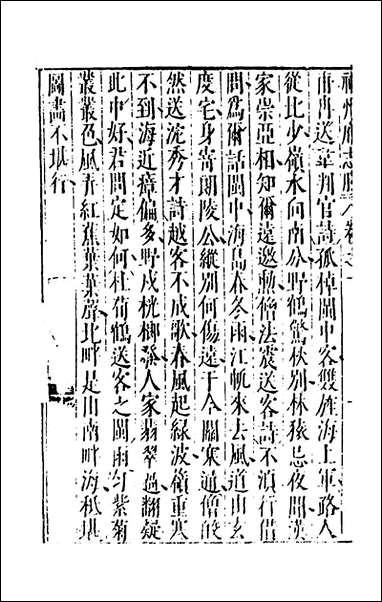 州府志勝卷之
冉冉送韋判官詩孤棹閩中客雙旌海上軍路人
從此少嶺水向南分野鶴驚秋別林猿忌夜聞漢
家崇亞相知爾遠邀勳僧法震送客詩不滇行借
問爲爾話閩中海島春冬雨江帆來去風道由玄
度宅身寄朗陵公縱別何傷遠于今關塞通僧皎
然送沈秀才詩越客不成歌春風起綠波嶺重寒
不到海近瘴偏多野戍桄榔發人家翡翠過翻疑
此中好君問定如何杜荀鶴送客之閩雨勻紫菊
叢叢色風弄紅蕉葉葉聲北畔是山南畔海秪堪
圖畫不堪行